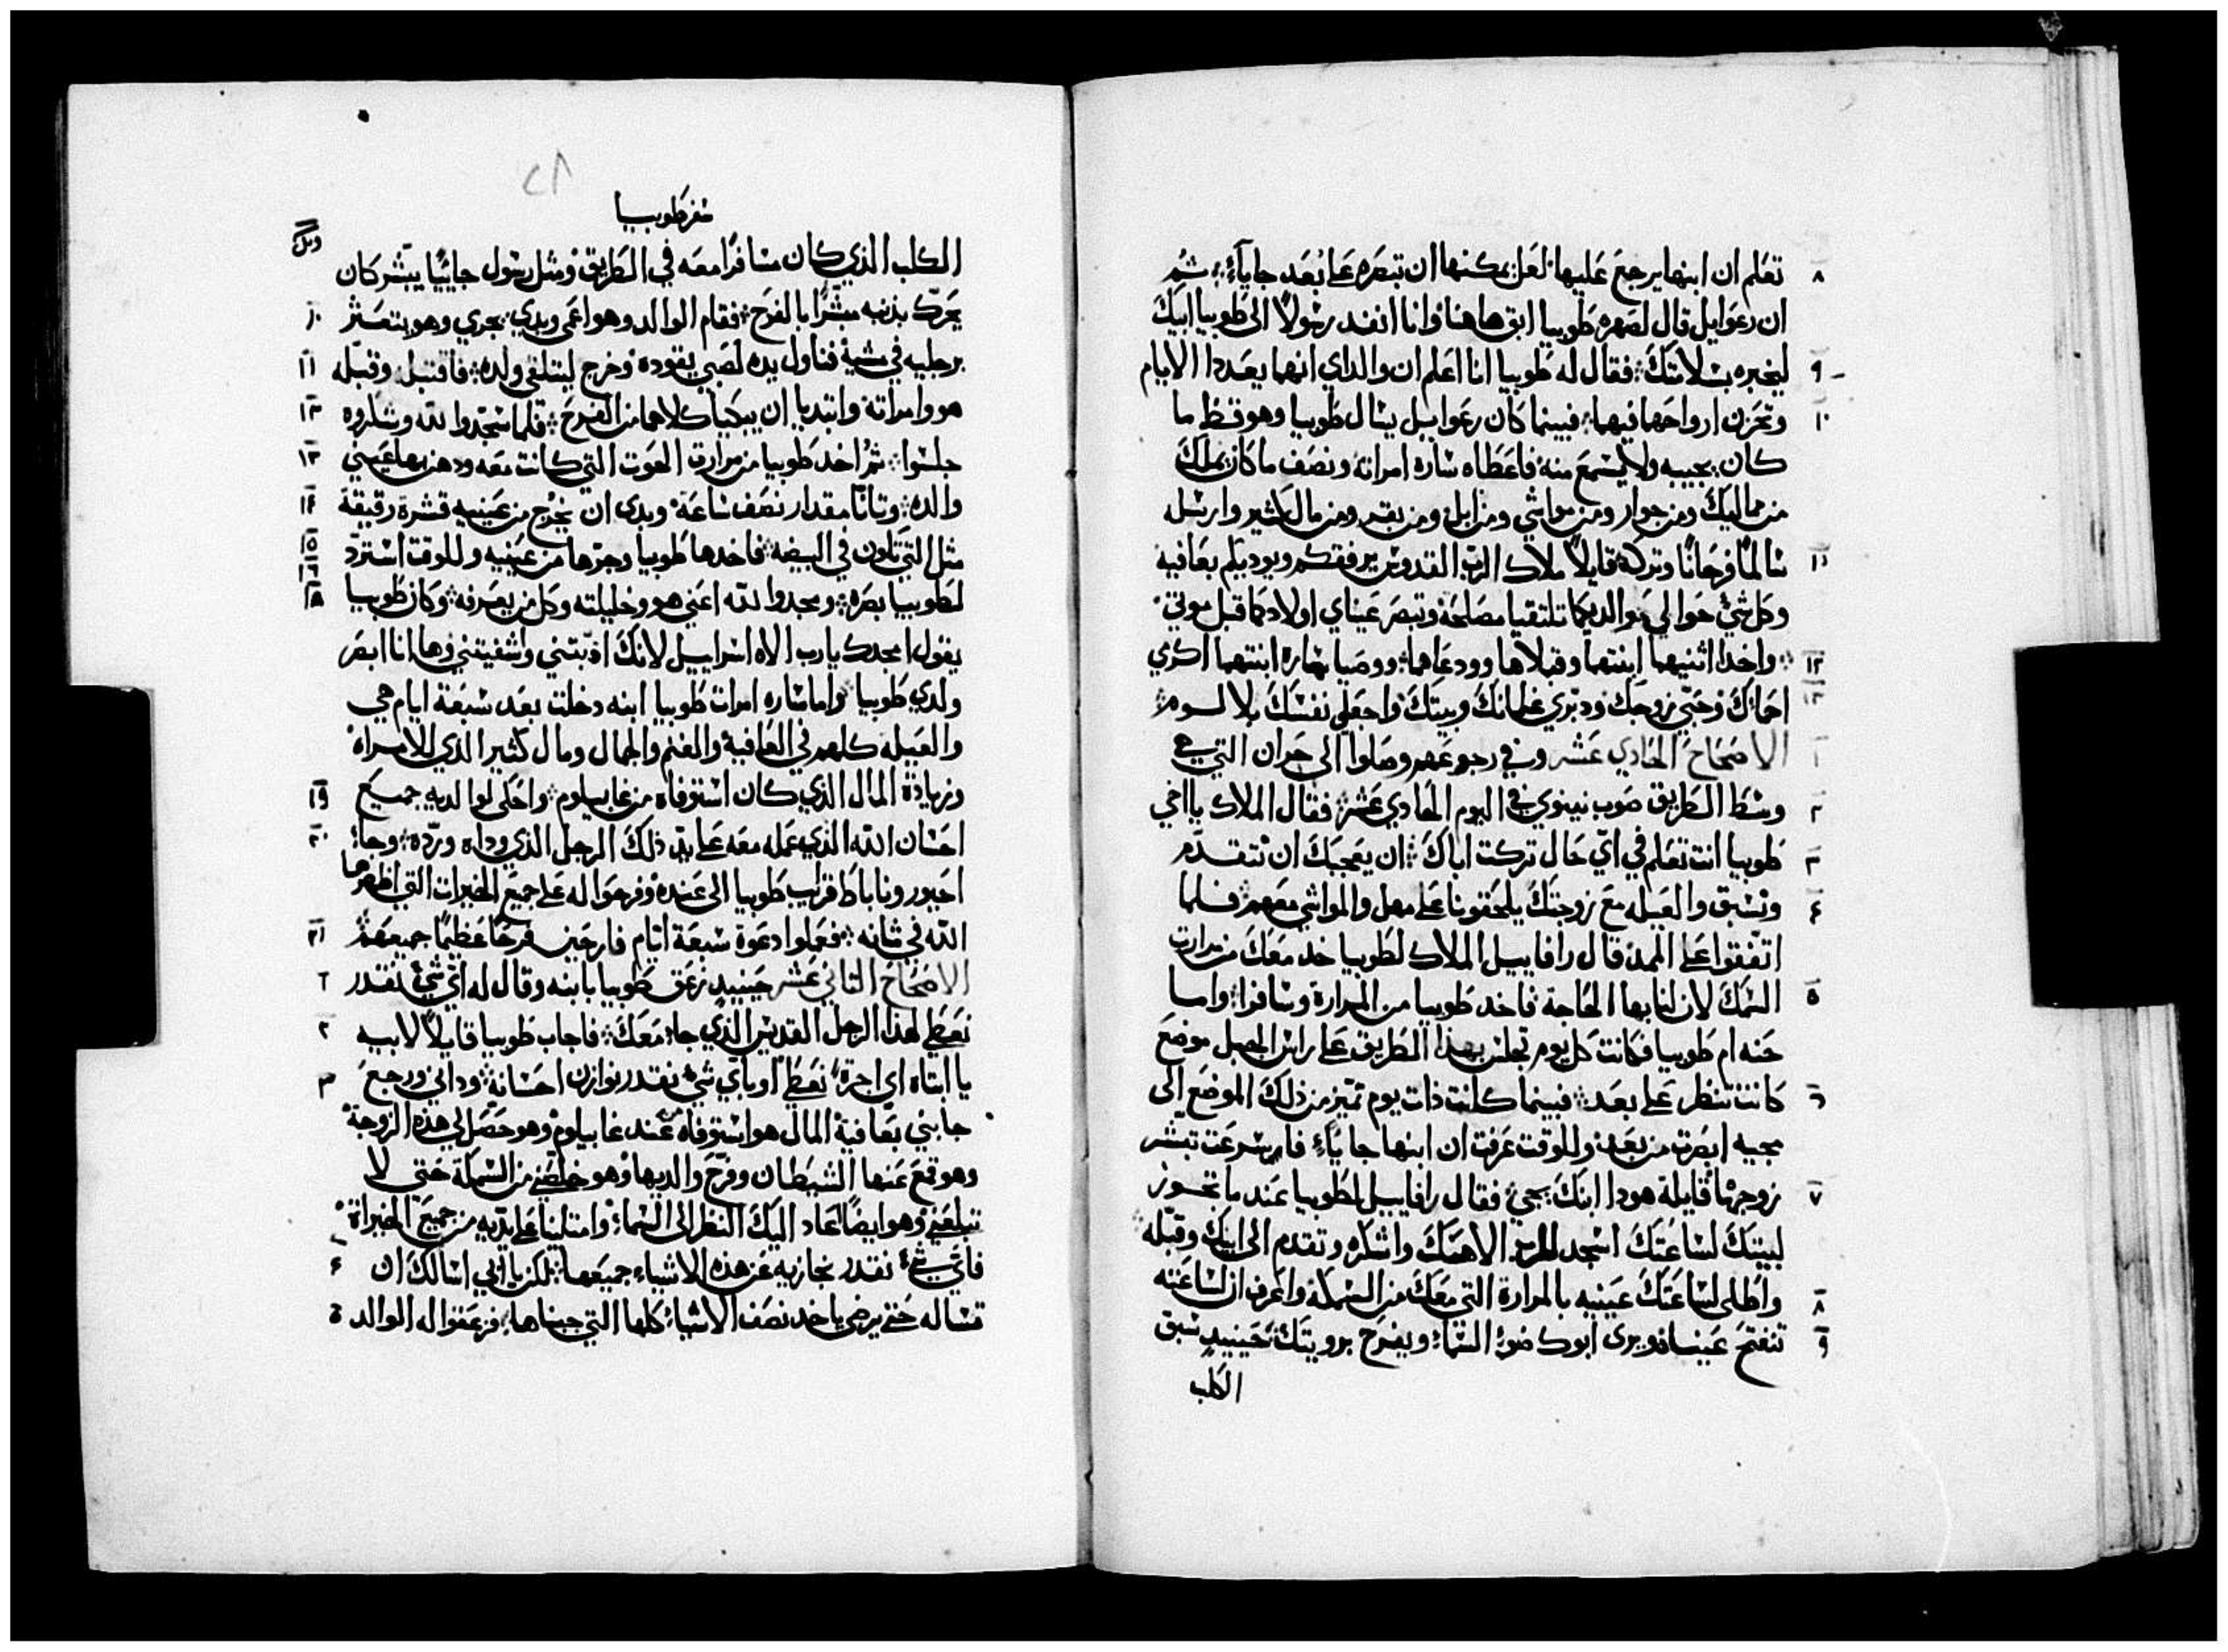 ٨ تعلم ان ابنها يرجع عليها لعل يمكنها ان تبصره على بعد جاياً ثم
ان رعوايل قال لصهره طوبيا ابق هاهنا وانا انفد رسولاً الى طوبيا ابيك
٩ ليخبره بسلامتك فقال له طوبيا انا اعلم ان والداي انهما يعددا الايام
١٠ وتحزن ارواحهما فيهما فبينما كان رعوايل يسال طوبيا وهو قط ما
كان يجيبه ولا يسمع منه فاعطاه ساره امراته ونصف ما كان يملك
من مماليك ومن جوار ومن مواشي ومن ابل ومن بقر ومن مال كثير وارسله
١١ سالماً فرحاناً وتركه قايلاً ملاك الرب القدوس يرفقكم ويوديكم بعافيه
وكل شي حوالي والديكما تلتقيا مصلحة وتبصر عيناي اولادكما قبل موتي
١٢ واخدا اثنيهما ابنتهما وقبلاها وودعاهما ووصيا ساره ابنتهما اكرمي
١٣ احماك وحبي زوجك ودبري غلمانك وبيتك واجعلي نفسك بلا لوم
١ الاصحاح الحادي عشر وفي رجوعهم وصلوا الى حران التي هي
٢ وسط الطريق صوب نينوي في اليوم الحادي عشر فقال الملاك يا اخي
٣ طوبيا انت تعلم في اي حال تركت اباك ان يعجبك ان نتقدم
٤ ونسبق والعيله مع زوجتك يلحقونا على مهل والمواشي معهم فلما
اتفقوا على المده قال رافاييل الملاك لطوبيا خد معك من مرارة
٥ السمك لان لنا بها الحاجة فاخد طوبيا من المرارة وسافرا واما
حنه ام طوبيا فكانت كل يوم تجلس بهذا الطريق على راس الجبل موضع
٦ كانت تنظر على بعد فبينما كانت ذات يوم تميز من ذلك الموضع الى
مجيه ابصرت من بعد وللوقت عرفت ان ابنها جاياً فاسرعت تبشر
٧ زوجها قايلة هودا ابنك يجي فقال رافاييل لطوبيا عند ما تجوز
لبيتك لساعتك اسجد للرب الاهك واشكره وتقدم الى ابيك وقبله
٨ واطلي لساعتك عينيه بالمرارة التي معك من السمكة واعرف ان لساعته
٩ تنفتح عيناه ويرى ابوك ضو السما ويفرح برويتك حينيد سبق
الكلب
٢٨
سفر طوبيا
الكلب الذي كان مسافراً معه في الطريق ومثل رسول جايياً يبشر كان
١٠ يحرك بذنبه مبشراً بالفرح فقام الوالد وهو اعمى وبدي يجري وهو يتعثر
١١ برجليه في مشيه فناول يده لصبي يقوده وخرج ليتلقى ولده فاقتبل وقبله
١٢ هو وامراته وابتديا ان يبكيا كلاهما من الفرح فلما سجدوا لله وشكروه
١٣ جلسوا ثم اخد طوبيا من مرارة الحوت التي كانت معه ودهن بها عيني
١٤ والده وتانا مقدار نصف ساعة وبدى ان يخرج من عينيه قشرة رقيقة
١٥ مثل التي تكون في البيضه فاخدها طوبيا وجرها من عينيه وللوقت استرد
١٦ لطوبيا بصره ومجدوا لله اعني هو وخليلته وكل من يعرفه وكان طوبيا
يقول امجدك يا رب الاه اسراييل لانك ادبتني واشفيتني وها انا ابصر
ولدي طوبيا واما ساره امرات طوبيا ابنه دخلت بعد سبعة ايام هي
والعيله كلهم في العافية والغنم والجمال ومال كثير الذي للامراة
١٩ وزيادة المال الذي كان استوفاه من غابيلوم واحكى لوالديه جميع
٢٠ احسان الله الذي عمله معه على يد ذلك الرجل الذي وداه ورده وجا
احيور وناباط قرايب طوبيا الى عنده وفرحوا له على جميع الخيرات التي اظهرها
٢١ الله في شانه فعملوا دعوة سبعة ايام فارحين فرحاً عظيماً جميعهم
١ الاصحاح التاني عشر حينيد زعق طوبيا بابنه وقال له اي شي نقدر
٢ نعطي لهذا الرجل القديس الذي جا معك فاجاب طوبيا قايلاً لابيه
٣ يا ابتاه اي اجرة نعطي او باي شي نقدر نوازن احسانه وداني ورجع
جابني بعافية المال هو استوفاه عند غابيلوم وهو حصل لي هذه الزوجة
وهو قمع عنها الشيطان وفرح والديها وهو خلصني من السمكة حتى لا
تبلعني وهو ايضاً اعاد اليك النظر الى السما وامتلينا على يديه من جميع الخيراة
٤ فاي شي نقدر نجازيه عن هذه الاشياء جميعها لكن يا ابي اسالك ان
٥ تساله حتى يرضى ياخد نصف الاشيا كلها التي جبناها فزعقوا له الوالد